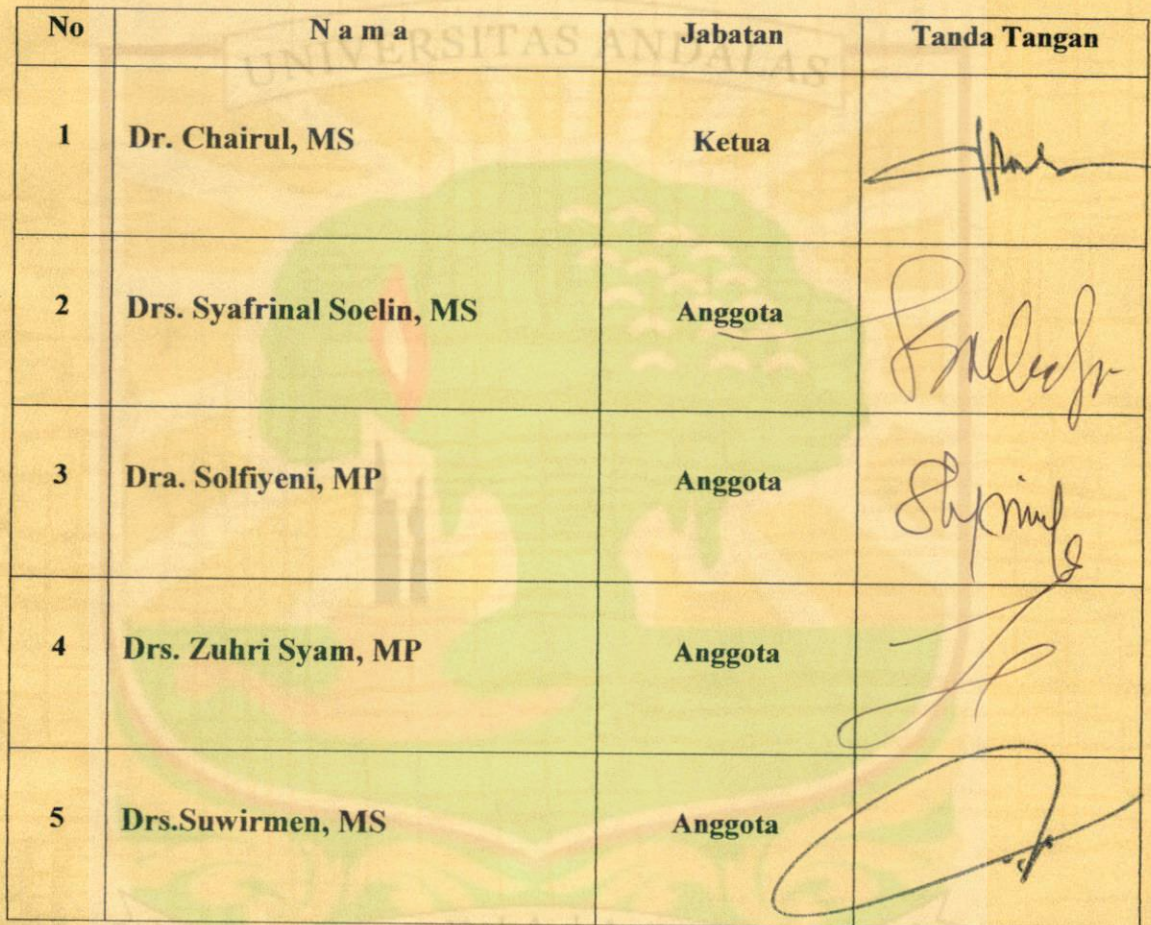 No N a m a Jabatan Tanda Tangan
UNIVERSITAS ANDALAS
1 Dr. Chairul, MS Ketua
2 Drs. Syafrinal Soelin, MS Anggota
3 Dra. Solfiyeni, MP Anggota
4 Drs. Zuhri Syam, MP Anggota
5 Drs.Suwirmen, MS Anggota